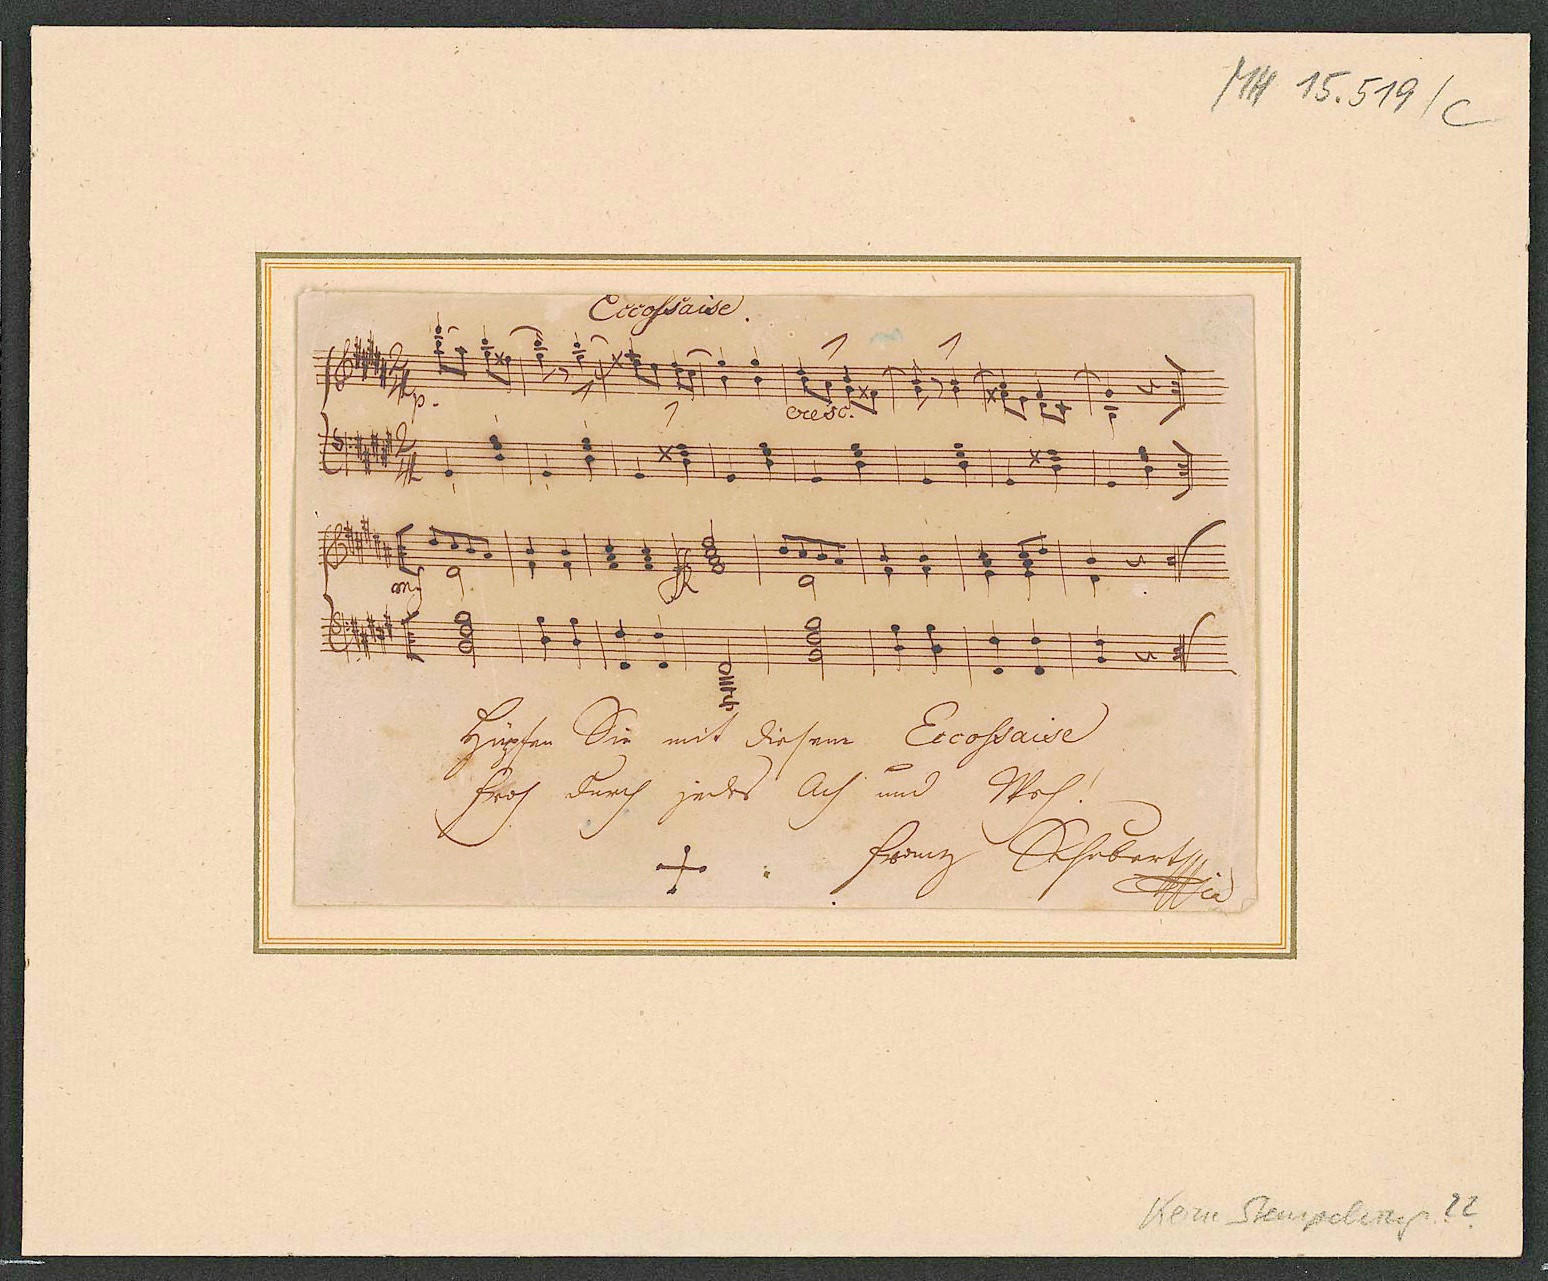 MH 15.519/c
Eccossaise.
p.
cresc.
Hüpfen Sie mit diesem Eccossaise
froh durch jedes Ach und Weh!
Franz Schubert
Keine Stempelung ??